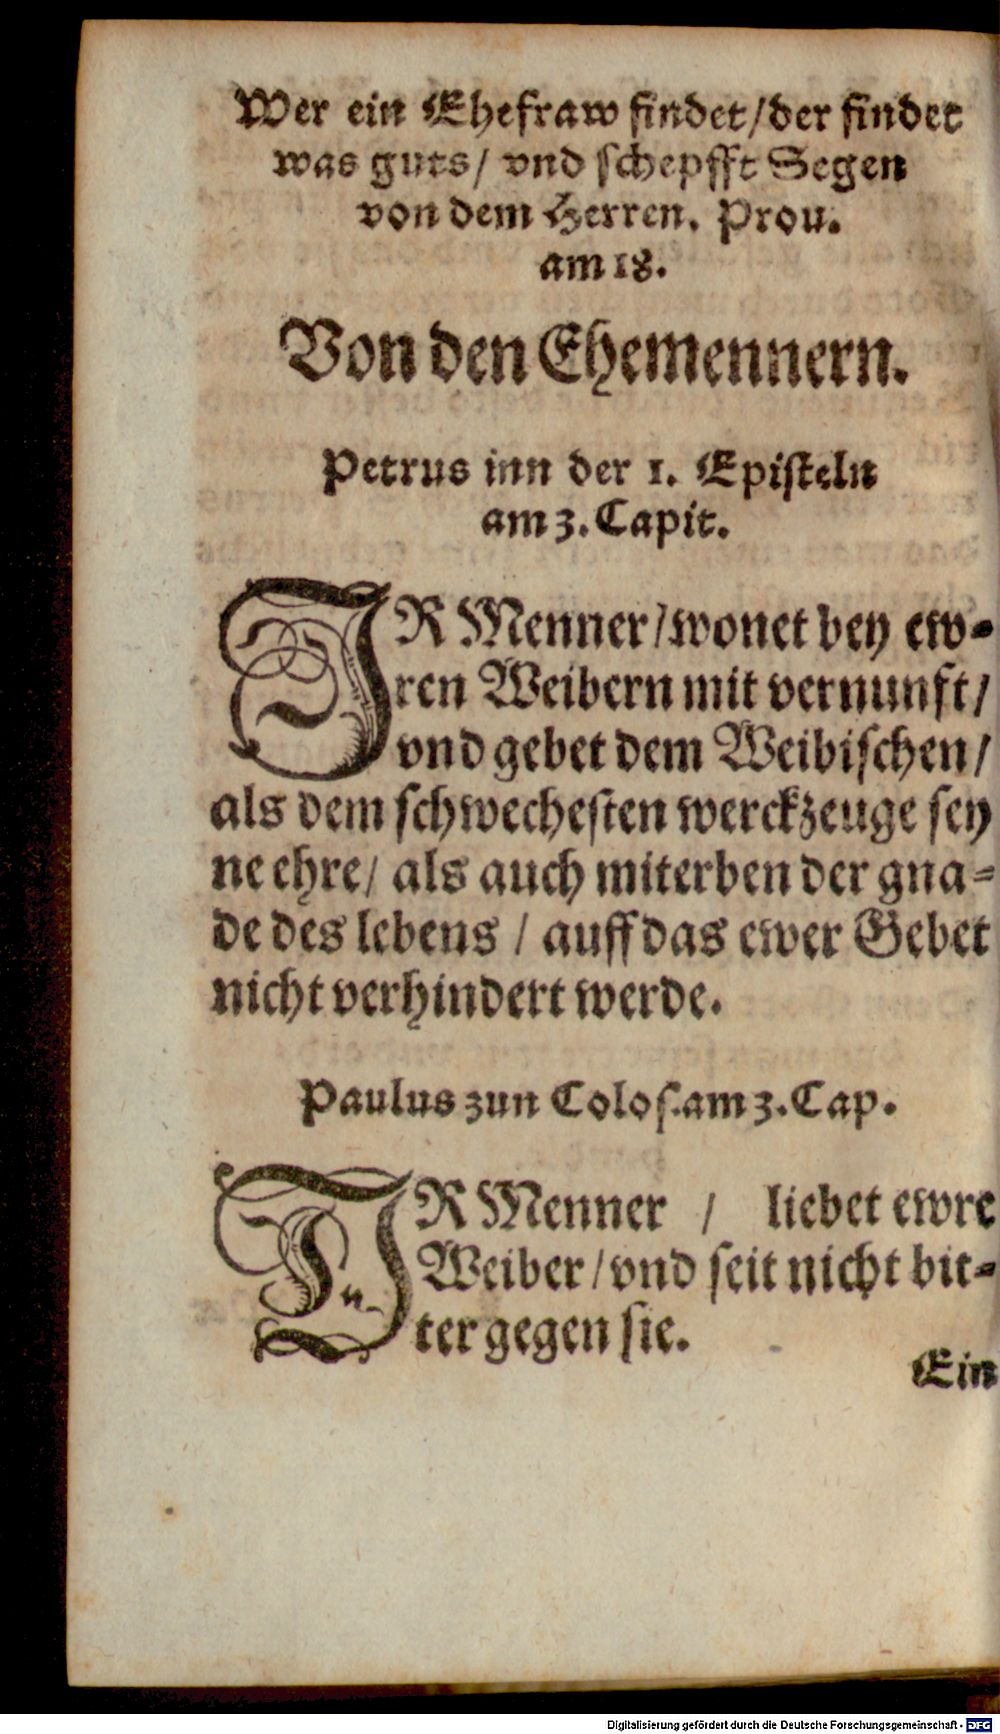 Wer ein Ehefraw findet/der findet
was guts/ vnd schepfft Segen
von dem Herren. Prou.
am 18.
Von den Ehemennern.
Petrus inn der 1. Episteln
am 3. Capit.
IR Menner/wonet bey ew-
ren Weibern mit vernunft/
vnd gebet dem Weibischen/
als dem schwechesten werckzeuge sey
ne ehre/ als auch miterben der gna-
de des lebens / auff das ewer Gebet
nicht verhindert werde.
Paulus zun Colos. am 3. Cap.
IR Menner / liebet ewre
Weiber/vnd seit nicht bit-
ter gegen sie.
Ein
Digitalisierung gefördert durch die Deutsche Forschungsgemeinschaft - DFG